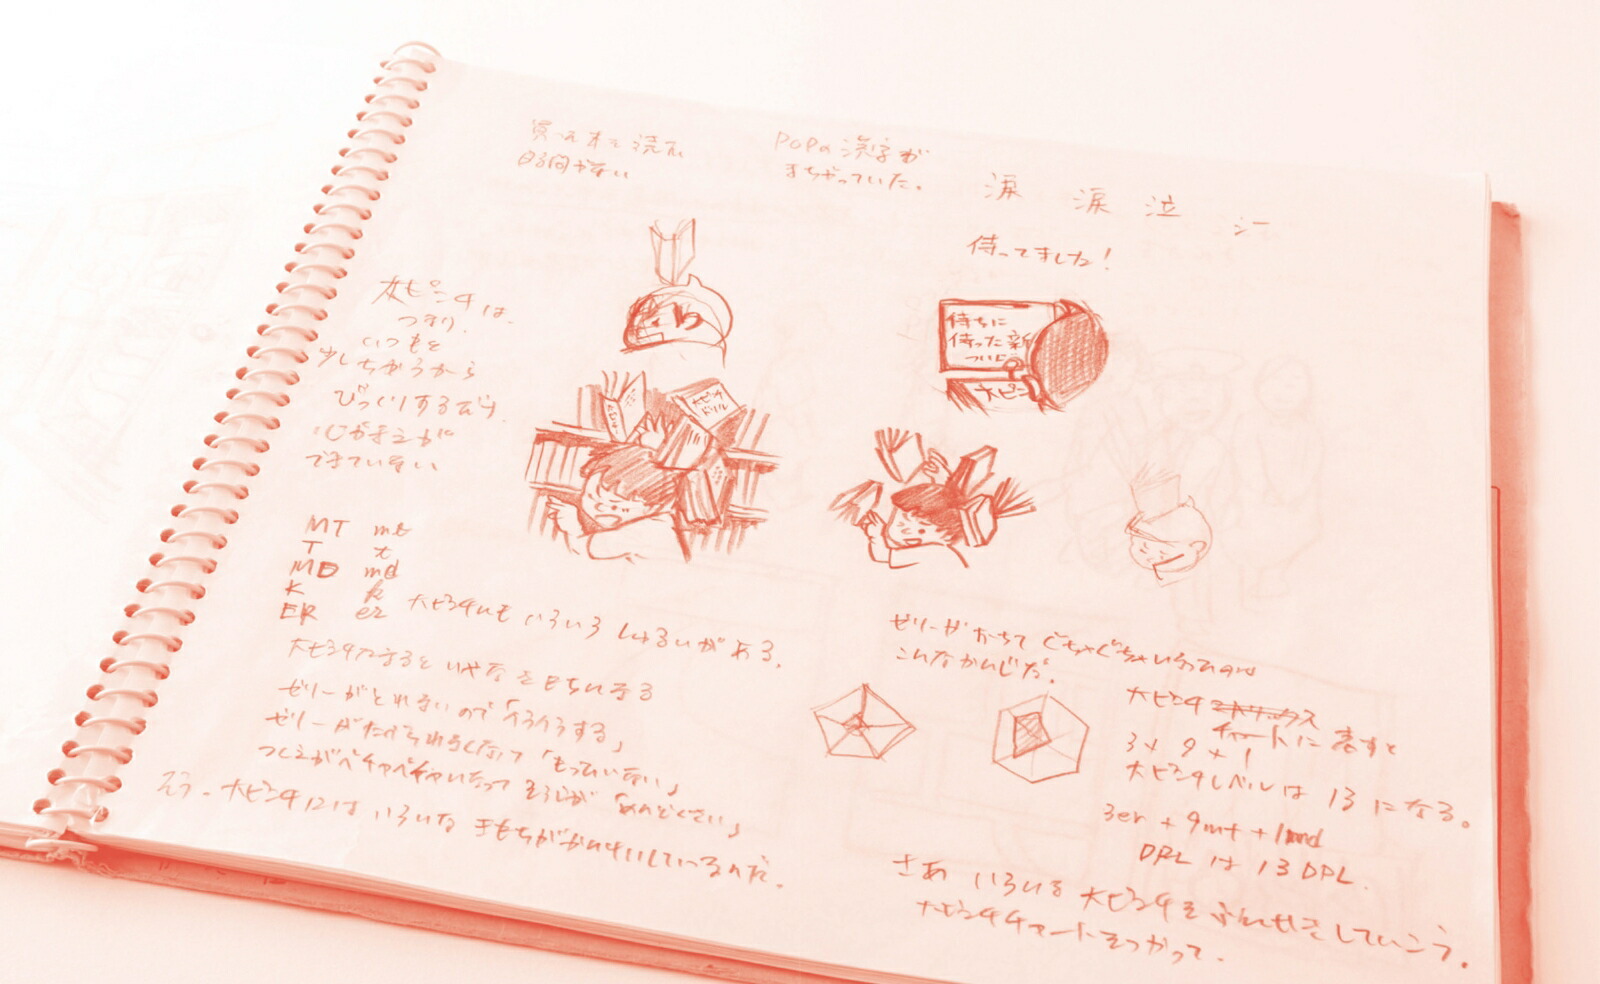 買った本を読む
時間がない
POPの漢字が
まちがっていた。
涙 涙 泣 シー
待ってました!
待ちに
待った新
ついに
大ピン
大ピンチは
つまり、
いつもと
少しちがうから
びっくりするだけ
心がまえが
できていない
大ピンチ
ドリル
MT mt
T t
MD md
K k
ER er
大ピンチにも いろいろ しゅるいがある。
大ピンチになると いやな きもちになる
ゼリーがとれないので「イライラする」
ゼリーがたべられなくなって「もったいない」
つくえがベチャベチャになって そうじが「めんどくさい」
そう。大ピンチには いろいろな きもちがかんけいしているのだ。
ゼリーがおちて ぐちゃぐちゃになったのは
こんなかんじだ。
大ピンチ
チャートに表すと
3 + 9 + 1
大ピンチレベルは 13 になる。
3er + 9mt + 1md
DPL は 13 DPL.
さあ いろいろな 大ピンチを ぶんせきしていこう。
大ピンチチャートをつかって.